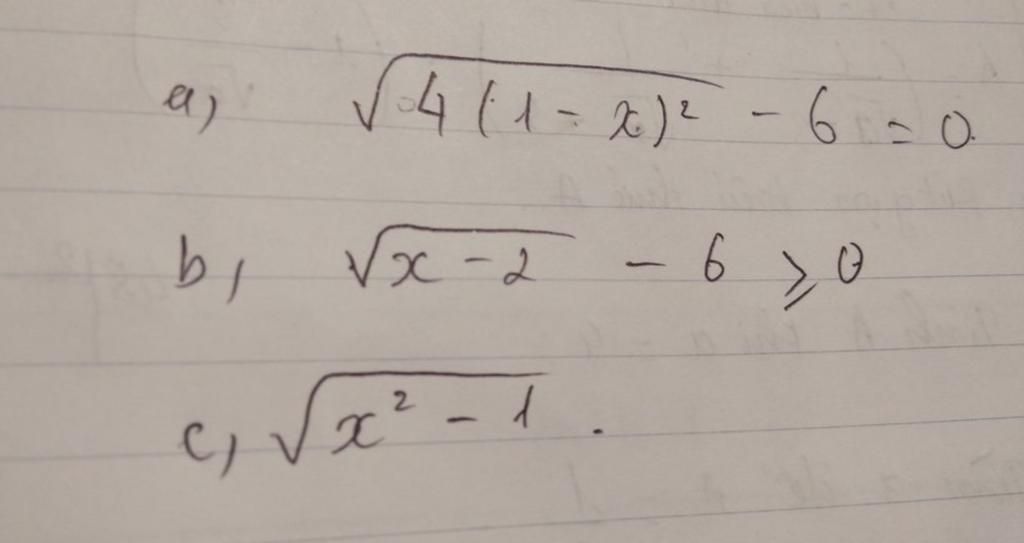 a, √4(1-x)² - 6 = 0.
b, √x-2 - 6 ⩾ 0
c, √x² - 1 .